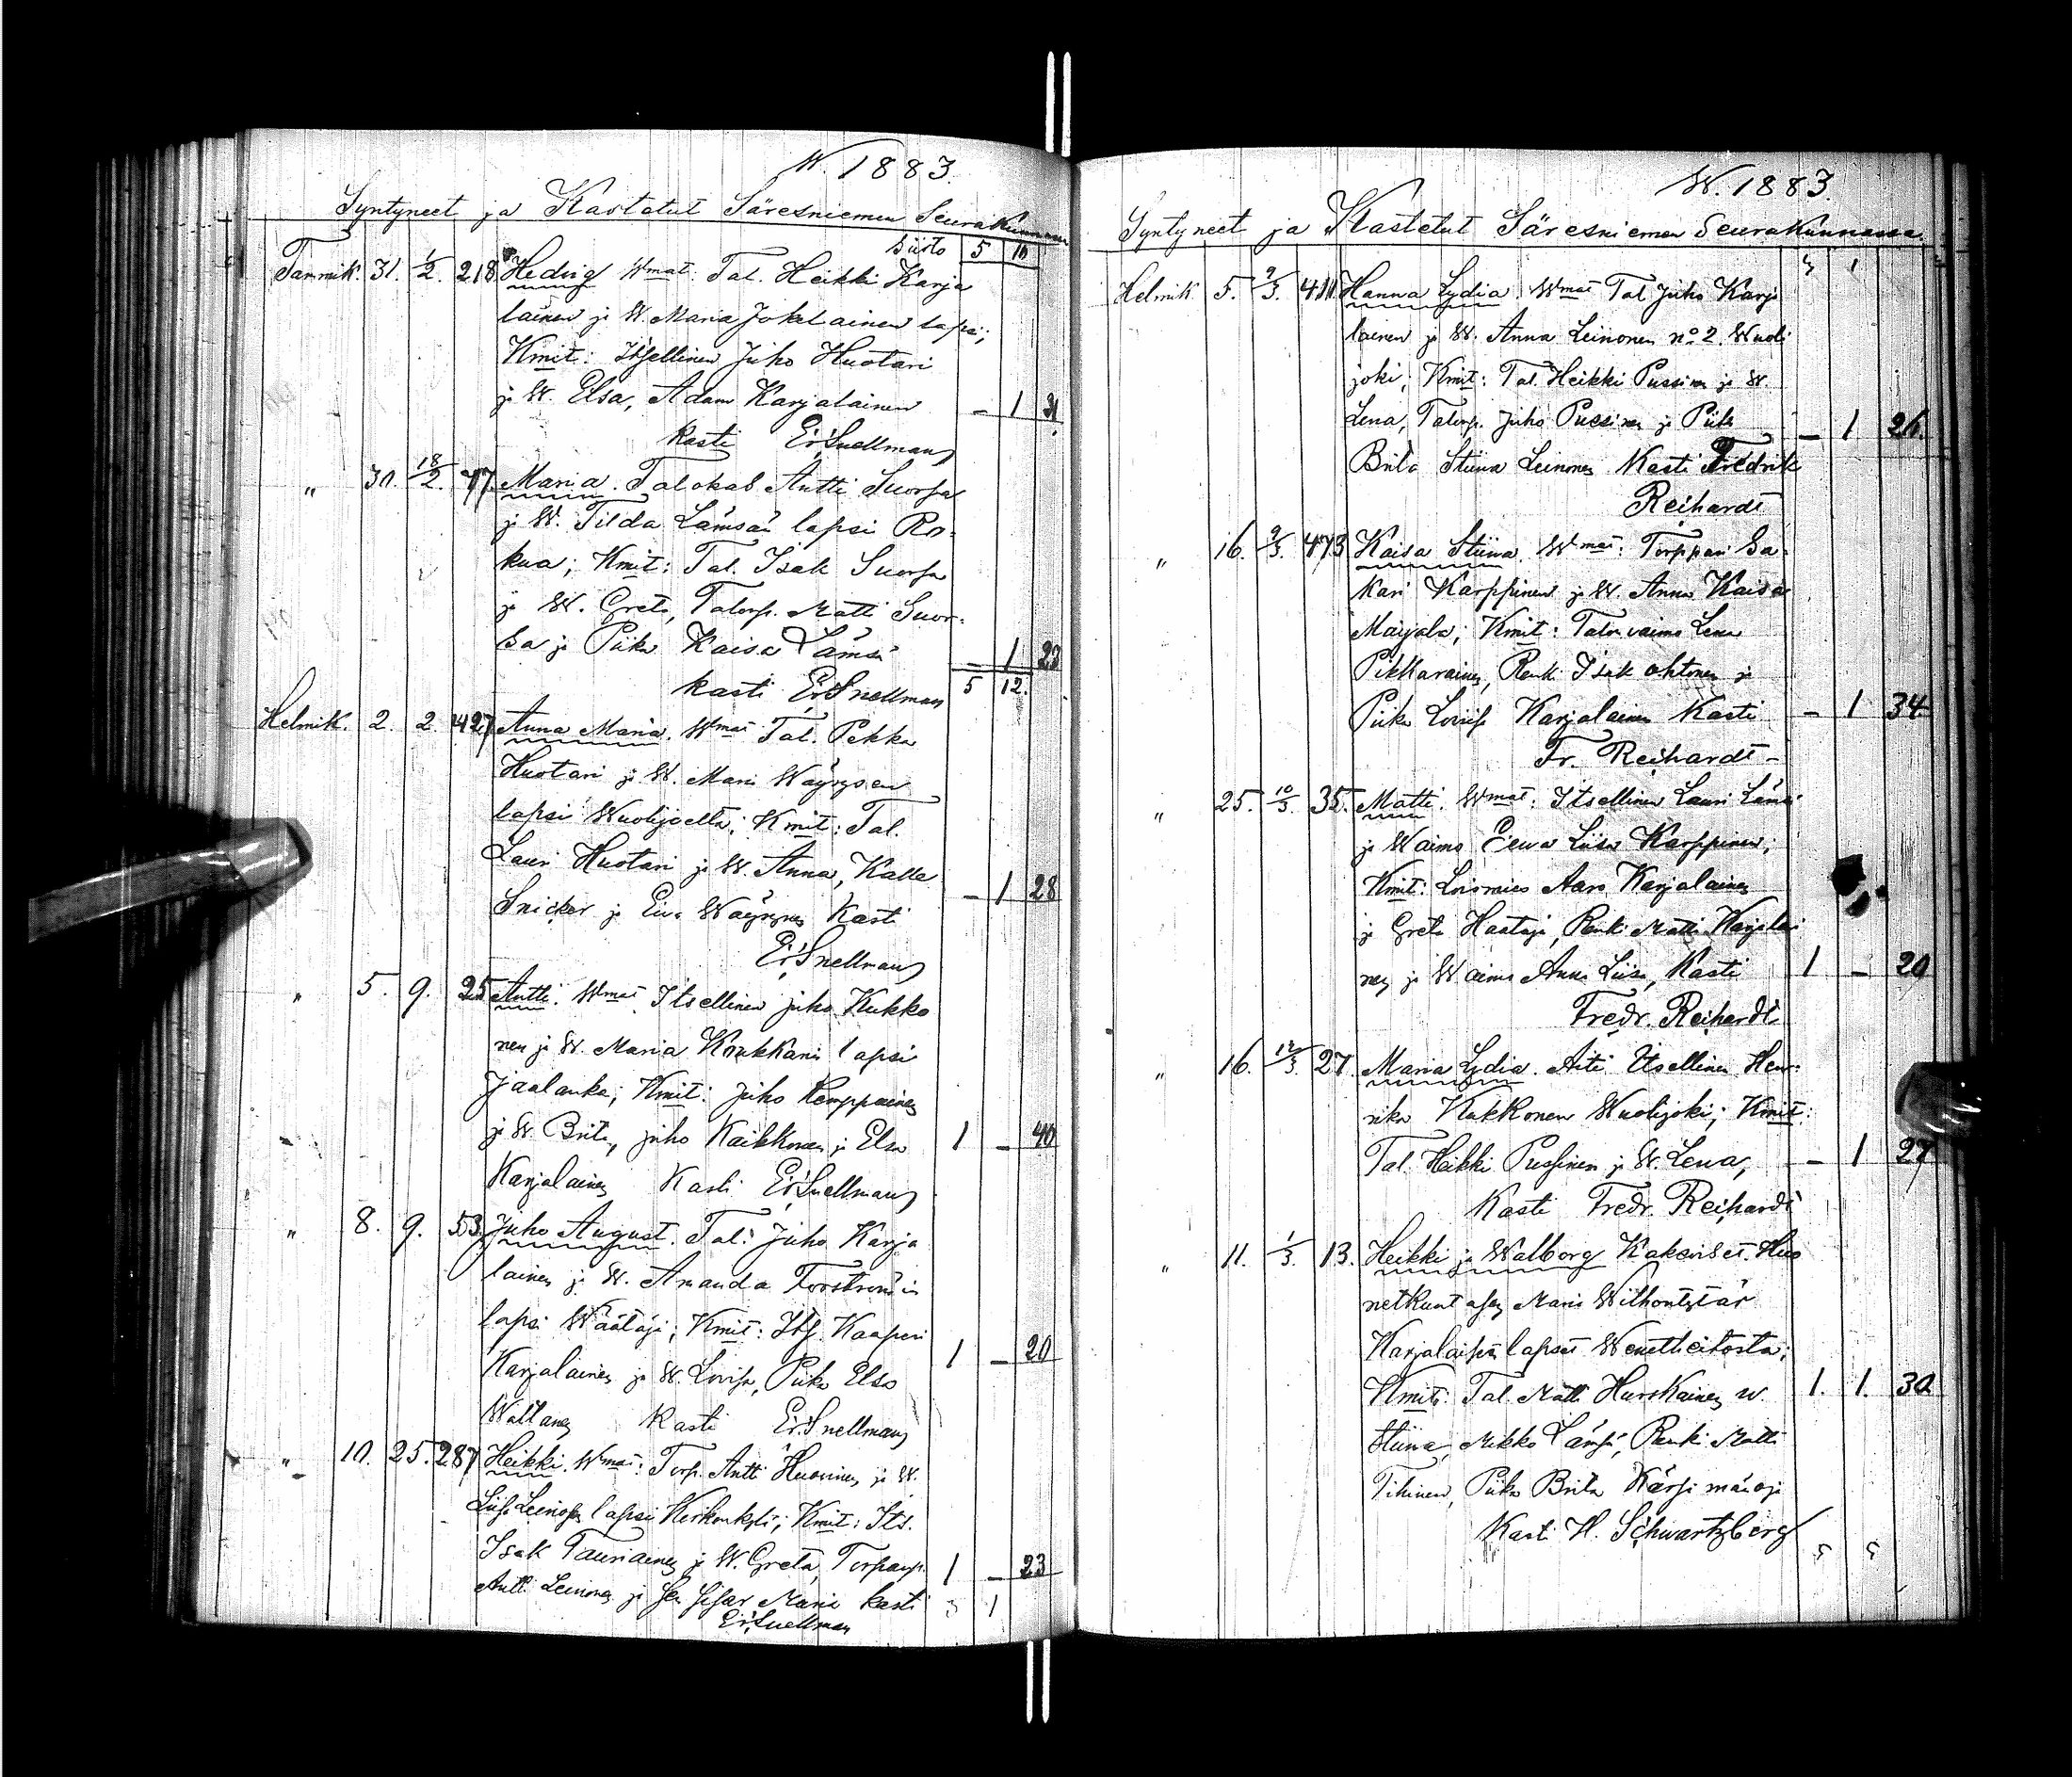 W. 1883.
Syntyneet ja Kastetut Säresniemen Seurakunnassa
Siirto 5 10
Tammik. 31. 1/2. 218 Hedvig Wmat: Tal. Heikki Karja
lainen ja W. Maria Jokelainen lapsi;
Kmit: Itsellinen Juho Huotari
ja W. Elsa, Adam Karjalainen – 1 31
kasti Er. Snellman
" 30. 18/2. 77. Maria. Talokas Antti Suorsa
ja W. Tilda Lämsän lapsi Ro-
kua; Kmit: Tal. Isak Suorsa
ja W. Greta, Talonp. Matti Suor-
sa ja Piika Kaisa Lämsä – 1 23
kasti Er. Snellman 5 12.
Helmik. 2. 2. 427 Anna Maria. Wmat Tal. Pekka
Huotari ja W. Maria Wäyrysen
lapsi Wuolijoelta; Kmit: Tal.
Lauri Huotari ja W. Anna, Kalle – 1 28
Snicker ja Eeva Wäyrynen Kasti
Er. Snellman
" 5. 9. 25 Antti. Wmat Itsellinen Juho Kukko
nen ja W. Maria lapsi
Jaalanka; Kmit: Juho Kemppainen
ja W. Brita, Juho Kaikkonen ja Elsa 1 – 40
Karjalainen Kasti Er. Snellman
" 8. 9. 53. Juho August. Tal: Juho Karja
lainen ja W. Amanda Forströmin
lapsi Wäätäjä; Kmit: Its. Kaaperi
Karjalainen ja W. Lovisa, Piika Elsa 1 – 20
Kasti Er. Snellman
" 10. 25. 287 Heikki. Wmat: Torp. Antti Huovinen ja W.
Liisa Leinosen lapsi; Kmit: Its.
Isak Tauriainen ja W. Greta, Torpanp. 1 – 23
Antti Leinonen ja sen sisar Maria kasti 3 1
Er. Snellman
W. 1883.
Syntyneet ja Kastetut Säresniemen Seurakunnassa.
Helmik. 5. 9/3. 411 Hanna Lydia. Wmat Tal Juho Karja
lainen ja W. Anna Leinonen no 2 Wuoli
joki; Kmit: Tal. Heikki Pussinen ja W.
Lena, Talonp. Juho Pussinen ja Piika – 1 26.
Brita Stiina Leinonen Kasti Fredrik
Reihardt
" 16. 9/3. 473 Kaisa Stiina. Wmat: Torppari Sa-
kari Karppinen ja W. Anna Kaisa
Maijala; Kmit: Talon vaimo Lena
Pikkarainen, Renk. Isak Ahtonen ja
Piika Loviisa Karjalainen Kasti – 1 34
Fr. Reihardt –
" 25. 10/3. 35. Matti. Wmat: Itsellinen Lauri Lämsä
ja Waimo Eewa Liisa Karppinen;
Kmit: Loismies Aaro Karjalainen
ja Greta Haataja, Renk: Matti Karjalai
nen ja Waimo Anna Liisa, Kasti 1 – 20
Fredr. Reihardt
" 16. 12/3. 27 Maria Lydia. Äiti Itsellinen Hen-
rika Kukkonen Wuolijoki; Kmit:
Tal. Heikki Pussinen ja W. Lena, – 1 27
Kasti Fredr. Reihardt
" 11. 1/3. 13. Heikki ja Walborg Kakoiset. Huo
Maria Wilhontytär
Karjalaisen lapset Wenetheitosta;
Kmit: Tal. Matti Hurskainen w. 1. 1. 30
Stiina, Mikko Lämsä, Renki Matti
Tihinen, Piika Brita
Kasti H. Schwartzberg
5 5